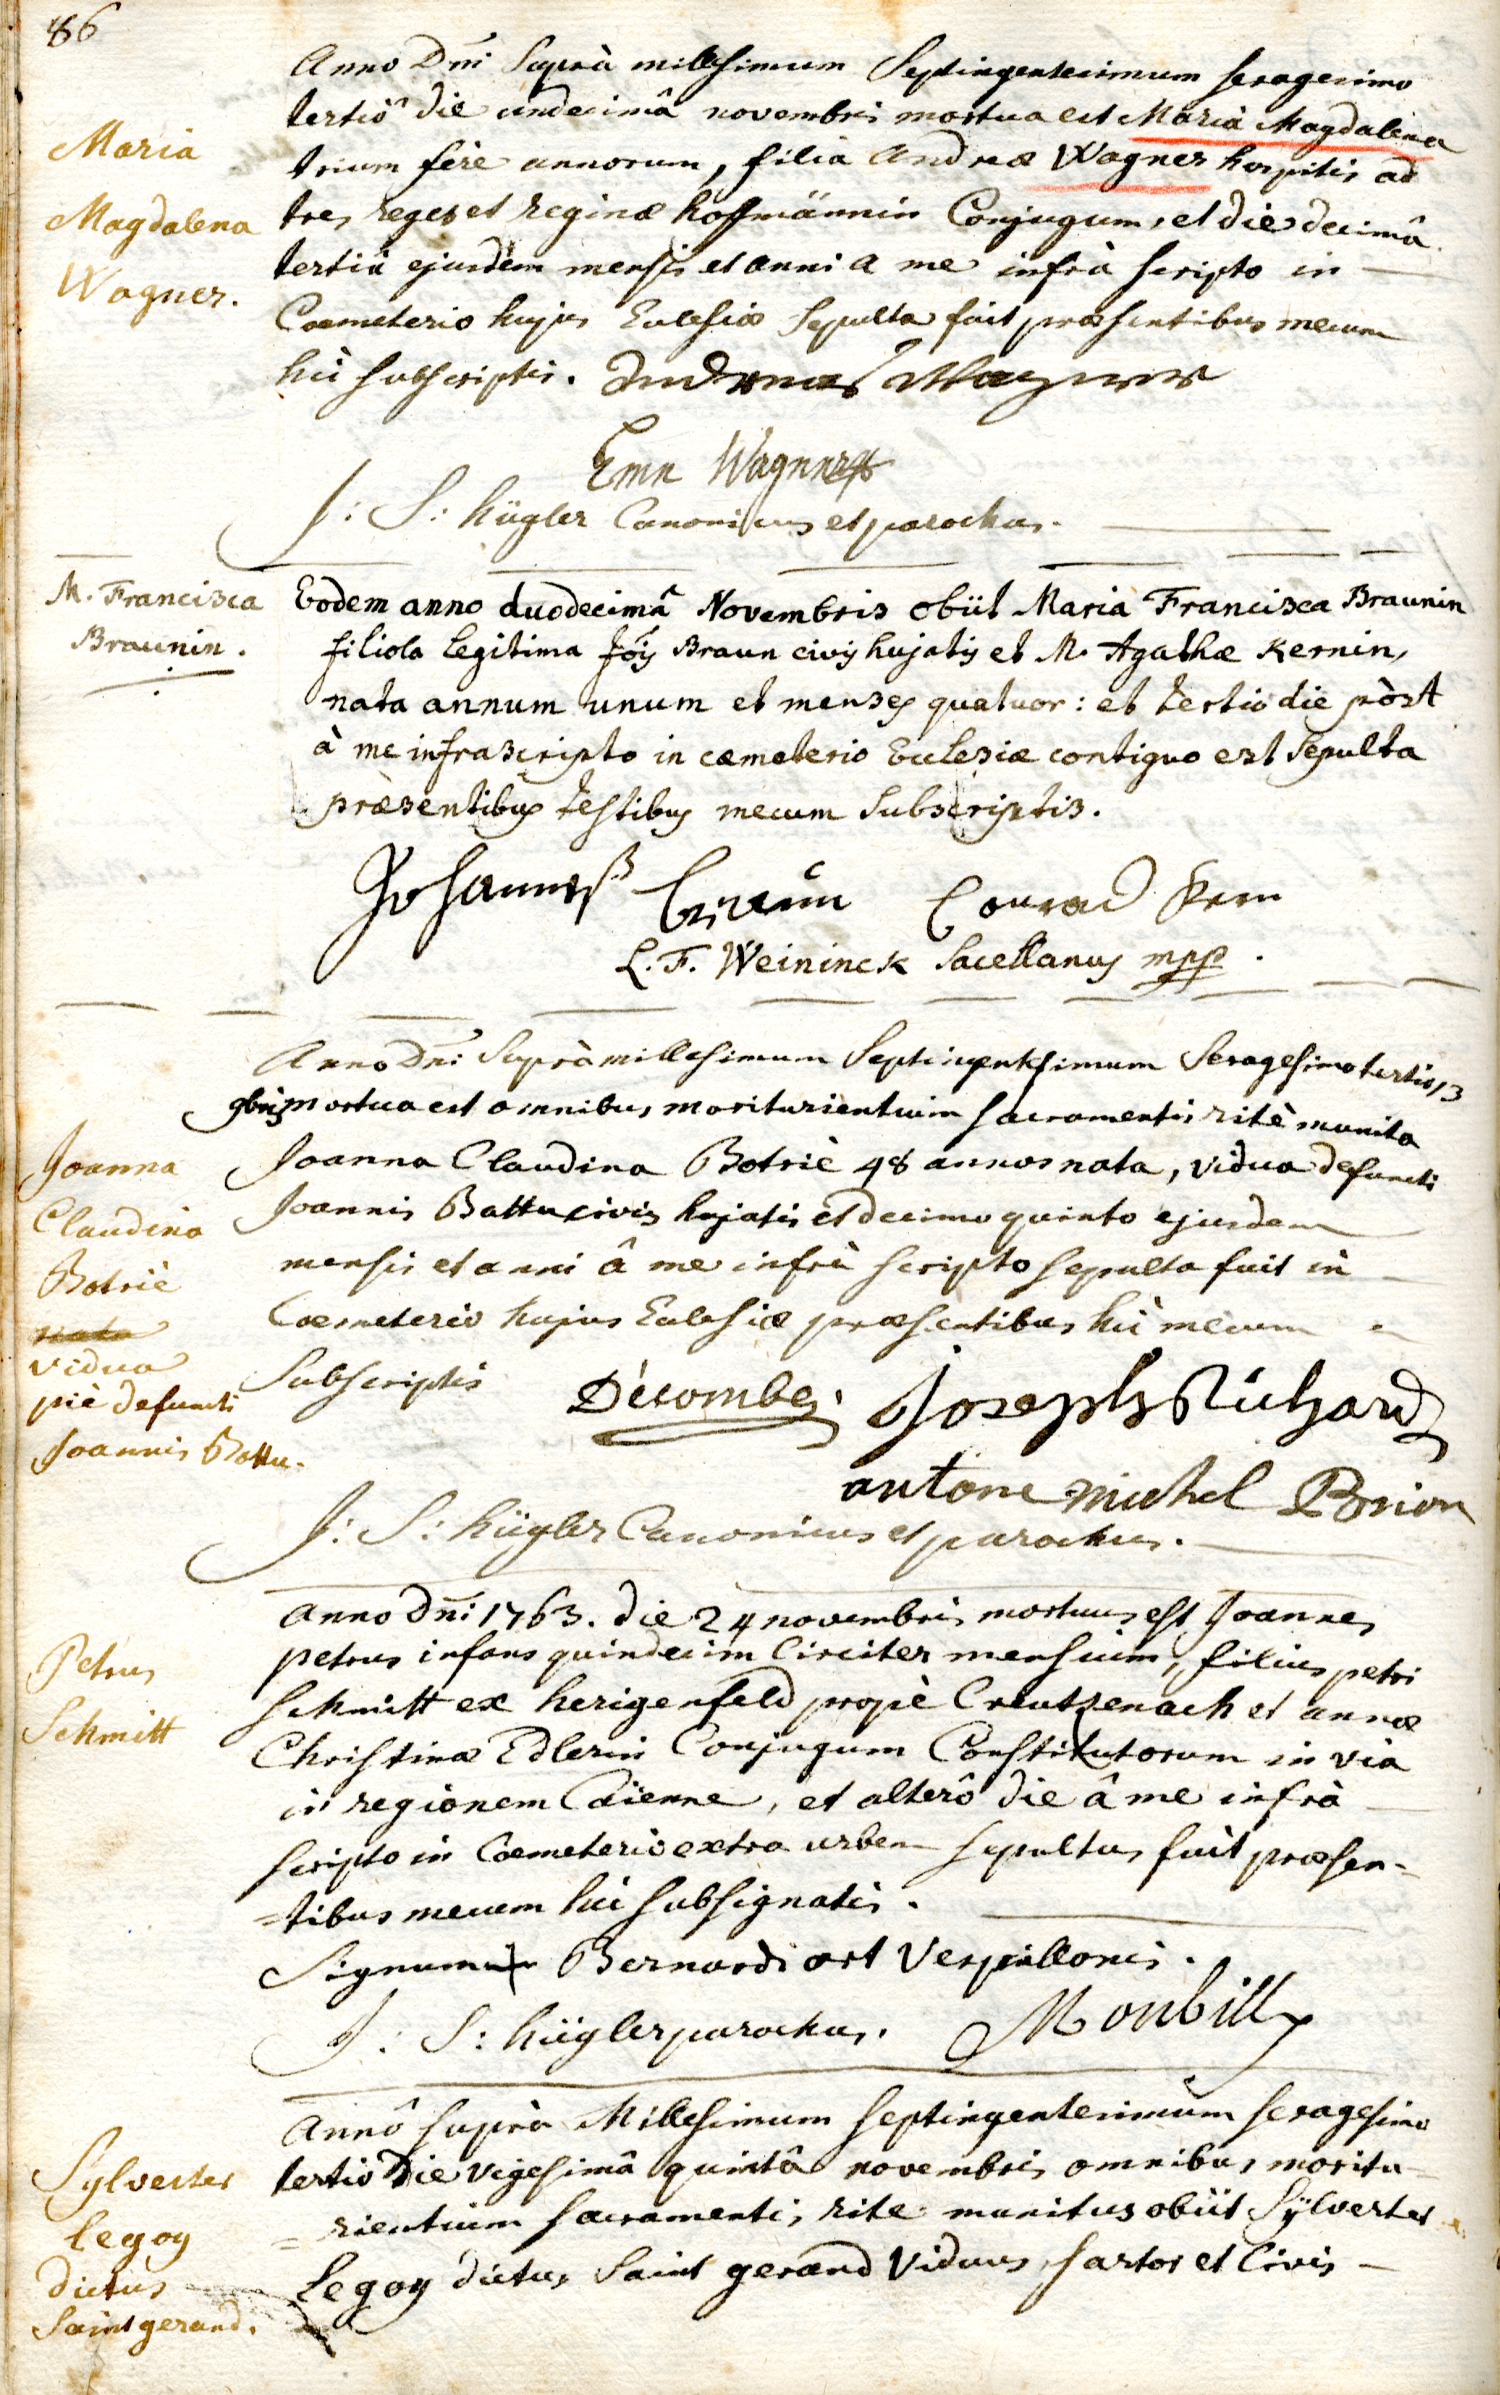 86
Anno Dni Suprà millesimum Septingentesimum sexagesimo
tertiô die undecimâ novembris mortua est Maria Magdalena
trium fere annorum, filia Andreæ Wagner hospitis ad
tres reges et reginæ hoffmännin Conjugum, et die decimâ
tertiâ ejusdem mensis et anni a me infrà scripto in
Coemeterio hujus Eclesiæ sepulta fuit præsentibus mecum
hìc subscriptis. Andreas Wagner
Maria
Magdalena
Wagner.
Wagner
J: S: hügler Canonicus et parochus.
M. Francisca
Braunin.
Eodem anno duodecimâ Novembris obiit Maria Francisca Braunin
filiola legitima Jois Braun civis hujatis et M. Agathæ Kernin,
nata annum unum et menses quatuor: et tertio die pòst
à me infrascripto in cæmeterio Ecclesiæ contiguo est sepulta
præsentibus testibus mecum subscriptis.
Johannes Braun Conrad Kern
L. F. Weininck Sacellanus mpp.
Anno Dni Suprà millesimum Septingentesimum Sexagesimo tertio 13
9bris mortua est omnibus moriturientium sacramentis ritè munita
Joanna Claudina Botriè 48 annos nata, vidua defuncti
Joannis Battu civis hujatis et decimo quinto ejusdem
mensis et anni â me infrà scripto sepulta fuit in
Coemeterio hujus Eclesiæ præsentibus hìc mecum
Subscriptis
Joanna
Claudina
Botriè
vidua
piè defuncti
Joannis Battu.
Decombe; Joseph Richard
antone michel Brion
J: S: hügler Canonicus et parochus.
Anno Dni 1763. die 24 novembris mortuus est Joannes
petrus infans quindecim Circiter mensium, filius petri
schmitt ex herigenfeld propè Creutzenach et annæ
Christinæ Edlerin Conjugum Constitutorum in via
in regionem Caïenne, et alterô die â me infrà
scripto in Coemeterio extra urbem sepultus fuit præsen-
=tibus mecum hìc subsignatis.
Petrus
Schmitt
Signum + Bernardi ort Vespillonis.
J: S: hügler parochus. Monbilly
Annô suprà Millesimum septingentesimum sexagesimo
tertio die vigesimâ quintâ novembris omnibus moritu=
=rientium sacramentis rite munitus obiit Sylvester
legoy dictus Saint gerand viduus, sartor et Civis
Sylvester
legoy
dictus
Saint gerand.